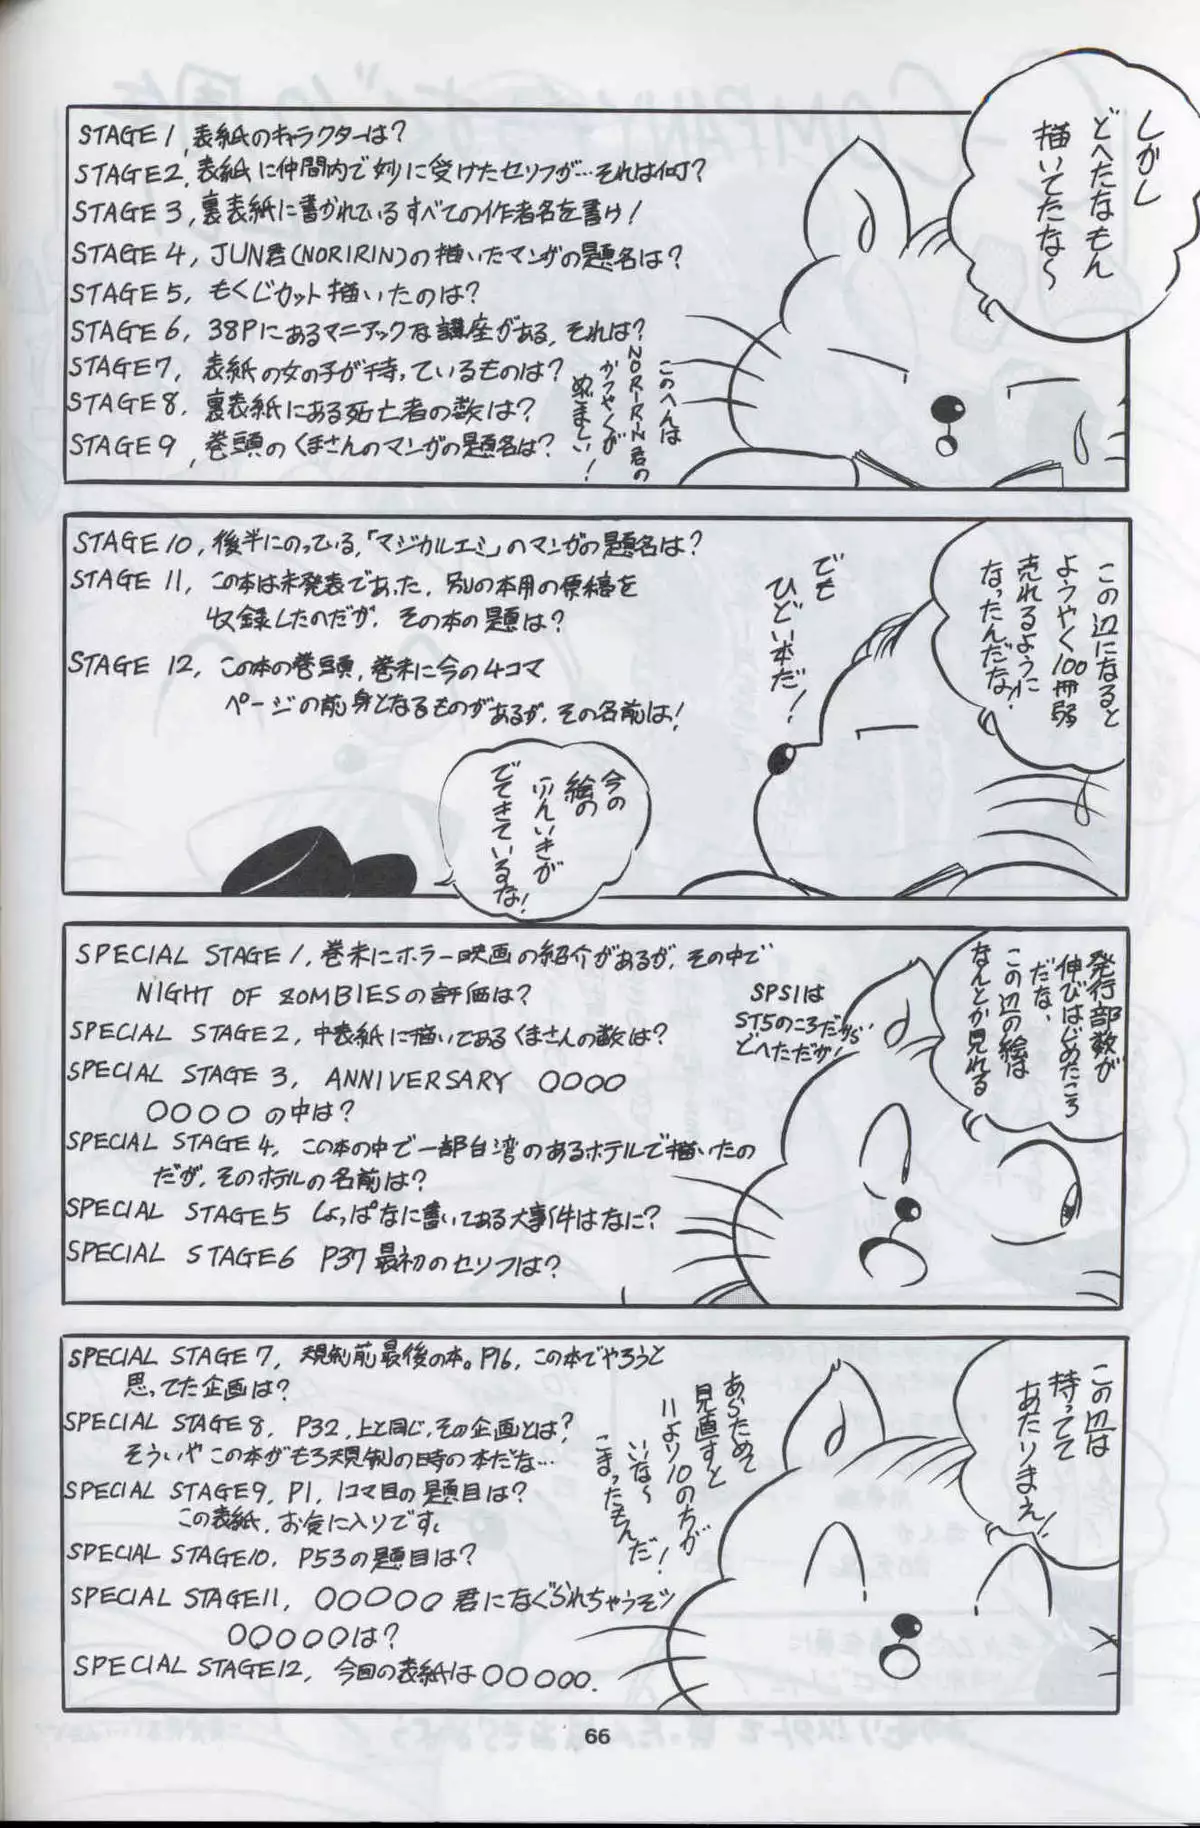 しかし
どへたなもん
描いてたな〜
STAGE 1, 表紙のキャラクターは?
STAGE 2, 表紙に仲間内で妙に受けたセリフが…それは何?
STAGE 3, 裏表紙に書かれているすべての作者名を書け!
STAGE 4, JUN君(NORIRIN)の描いたマンガの題名は?
STAGE 5, もくじカット描いたのは?
STAGE 6, 38Pにあるマニアックな講座がある, それは?
STAGE 7, 表紙の女の子が持っているものは?
STAGE 8, 裏表紙にある死亡者の数は?
STAGE 9, 巻頭のくまさんのマンガの題名は?
このへんは
NORIRIN君の
かつやくが
めざましい!
この辺になると
ようやく100冊弱
売れるように
なったんだな!
でも
ひどい本だ!
STAGE 10, 後半にのっている,「マジカルエミ」のマンガの題名は?
STAGE 11, この本は未発表であった, 別の本用の原稿を
収録したのだが, その本の題は?
STAGE 12, この本の巻頭, 巻末に今の4コマ
ページの前身となるものがあるが, その名前は!
今の
絵の
ふんいきが
でてきているな!
発行部数が
伸びはじめたころ
だな,
この辺の絵は
なんとか見れる
SPECIAL STAGE 1, 巻末にホラー映画の紹介があるが, その中で
NIGHT OF ZOMBIESの評価は?
SPECIAL STAGE 2, 中表紙に描いてあるくまさんの数は?
SPECIAL STAGE 3, ANNIVERSARY ○○○○
○○○○の中は?
SPECIAL STAGE 4, この本の中で一部台湾のあるホテルで描いたの
だが, そのホテルの名前は?
SPECIAL STAGE 5 しょっぱなに書いてある大事件はなに?
SPECIAL STAGE 6 P37最初のセリフは?
SPS1は
ST5のころだから
どへただが!
この辺は
持ってて
あたりまえ!
あらためて
見直すと
11より10のちが
いな〜
こまったもんだ!
SPECIAL STAGE 7, 規制前最後の本。P16, この本でやろうと
思ってた企画は?
SPECIAL STAGE 8, P32, 上と同じ, その企画とは?
そういやこの本がもろ規制の時の本だな…
SPECIAL STAGE 9, P1, 1コマ目の題目は?
この表紙, お気に入りです。
SPECIAL STAGE 10, P53の題目は?
SPECIAL STAGE 11, ○○○○○君になぐられちゃうぞッ
○○○○○は?
SPECIAL STAGE 12, 今回の表紙は○○○○○.
66